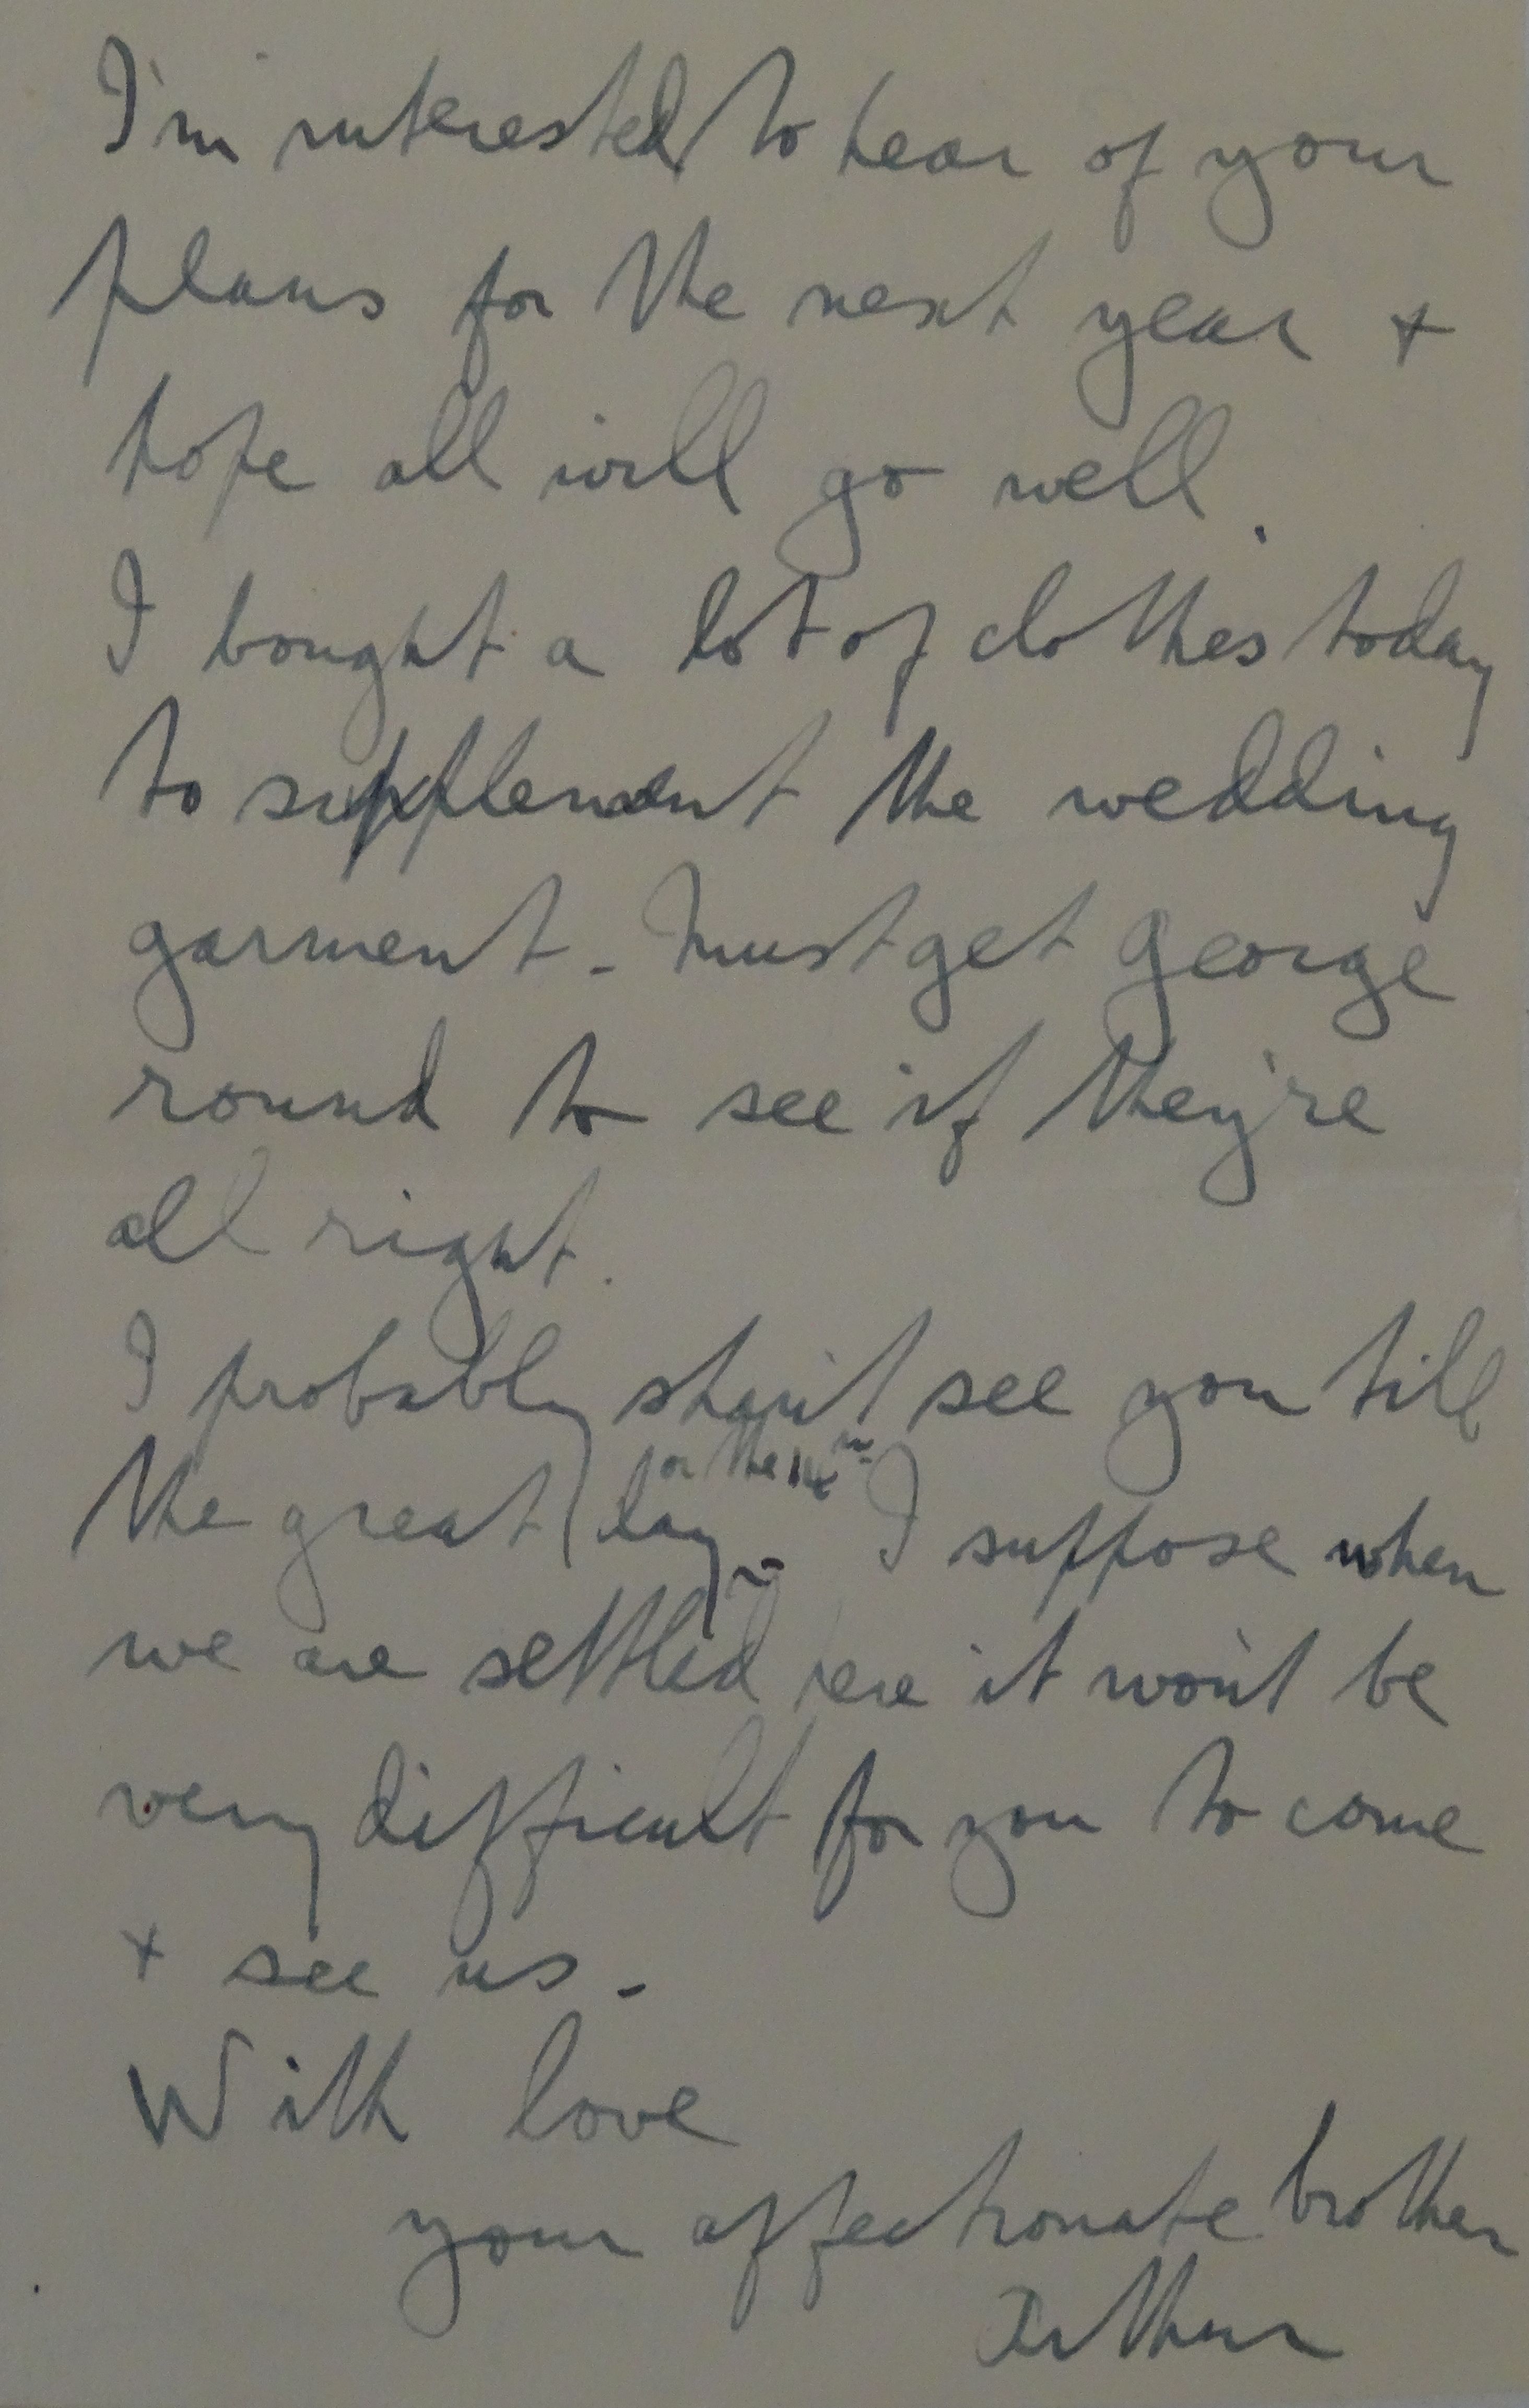 I'm interested to hear of your
plans for the next year +
hope all will go well.
I bought a lot of clothes today
to supplement the wedding
garment - Must get George
round to see if they're
all right.
I probably shan't see you till
or the
the great day - I suppose when
we are settled here it won't be
very difficult for you to come
+ see us -
With love
your affectionate brother
Arthur